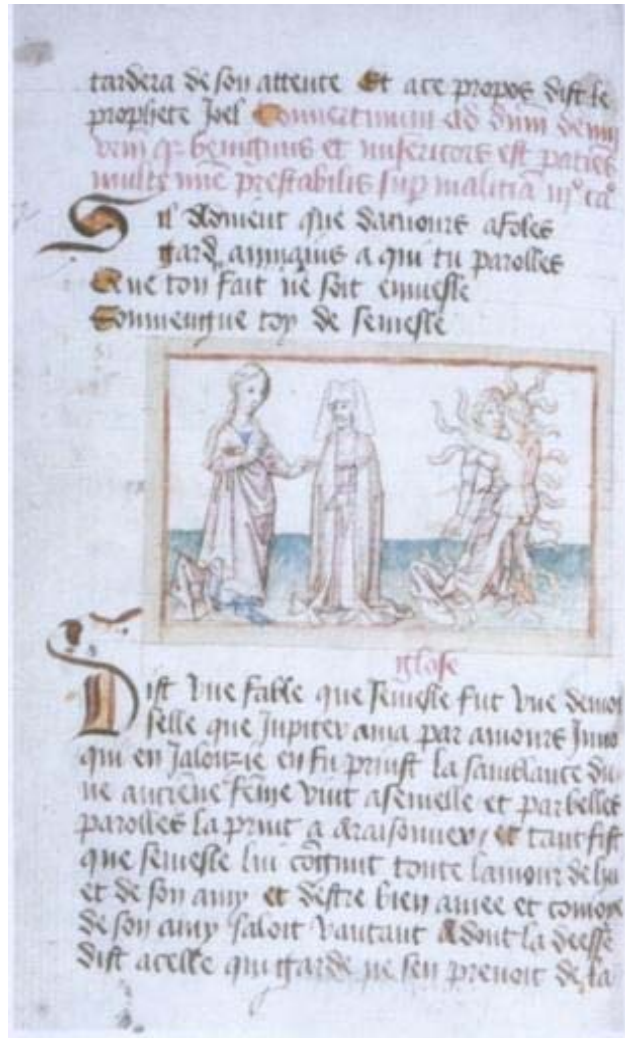 tardera de son attente Et a ce propos dist le
prophete Joel Convertimini ad dnm deum
vrm qz benignus et misericors est paciens
multe mie prestabilis sup malicia ii° ca°
Sil advient que damours afoles
gard aumains a qui tu parolles
Que ton fait ne soit
Souviengne toy de semesle
glose
Dist vne fable que semesle fut vne demoi
selle que Jupiter ama par amours Juno
qui en Jalouzie en fu prinst la samblance du
ne anciene feme vint a semelle et par belles
parolles la print a araisonner / et tant fist
que semesle lui congnut toute lamour de lui
et de son amy et destre bien amee et
de son amy saloit vantant Adont la deesse
dist a celle qui garde ne sen prenoit de la